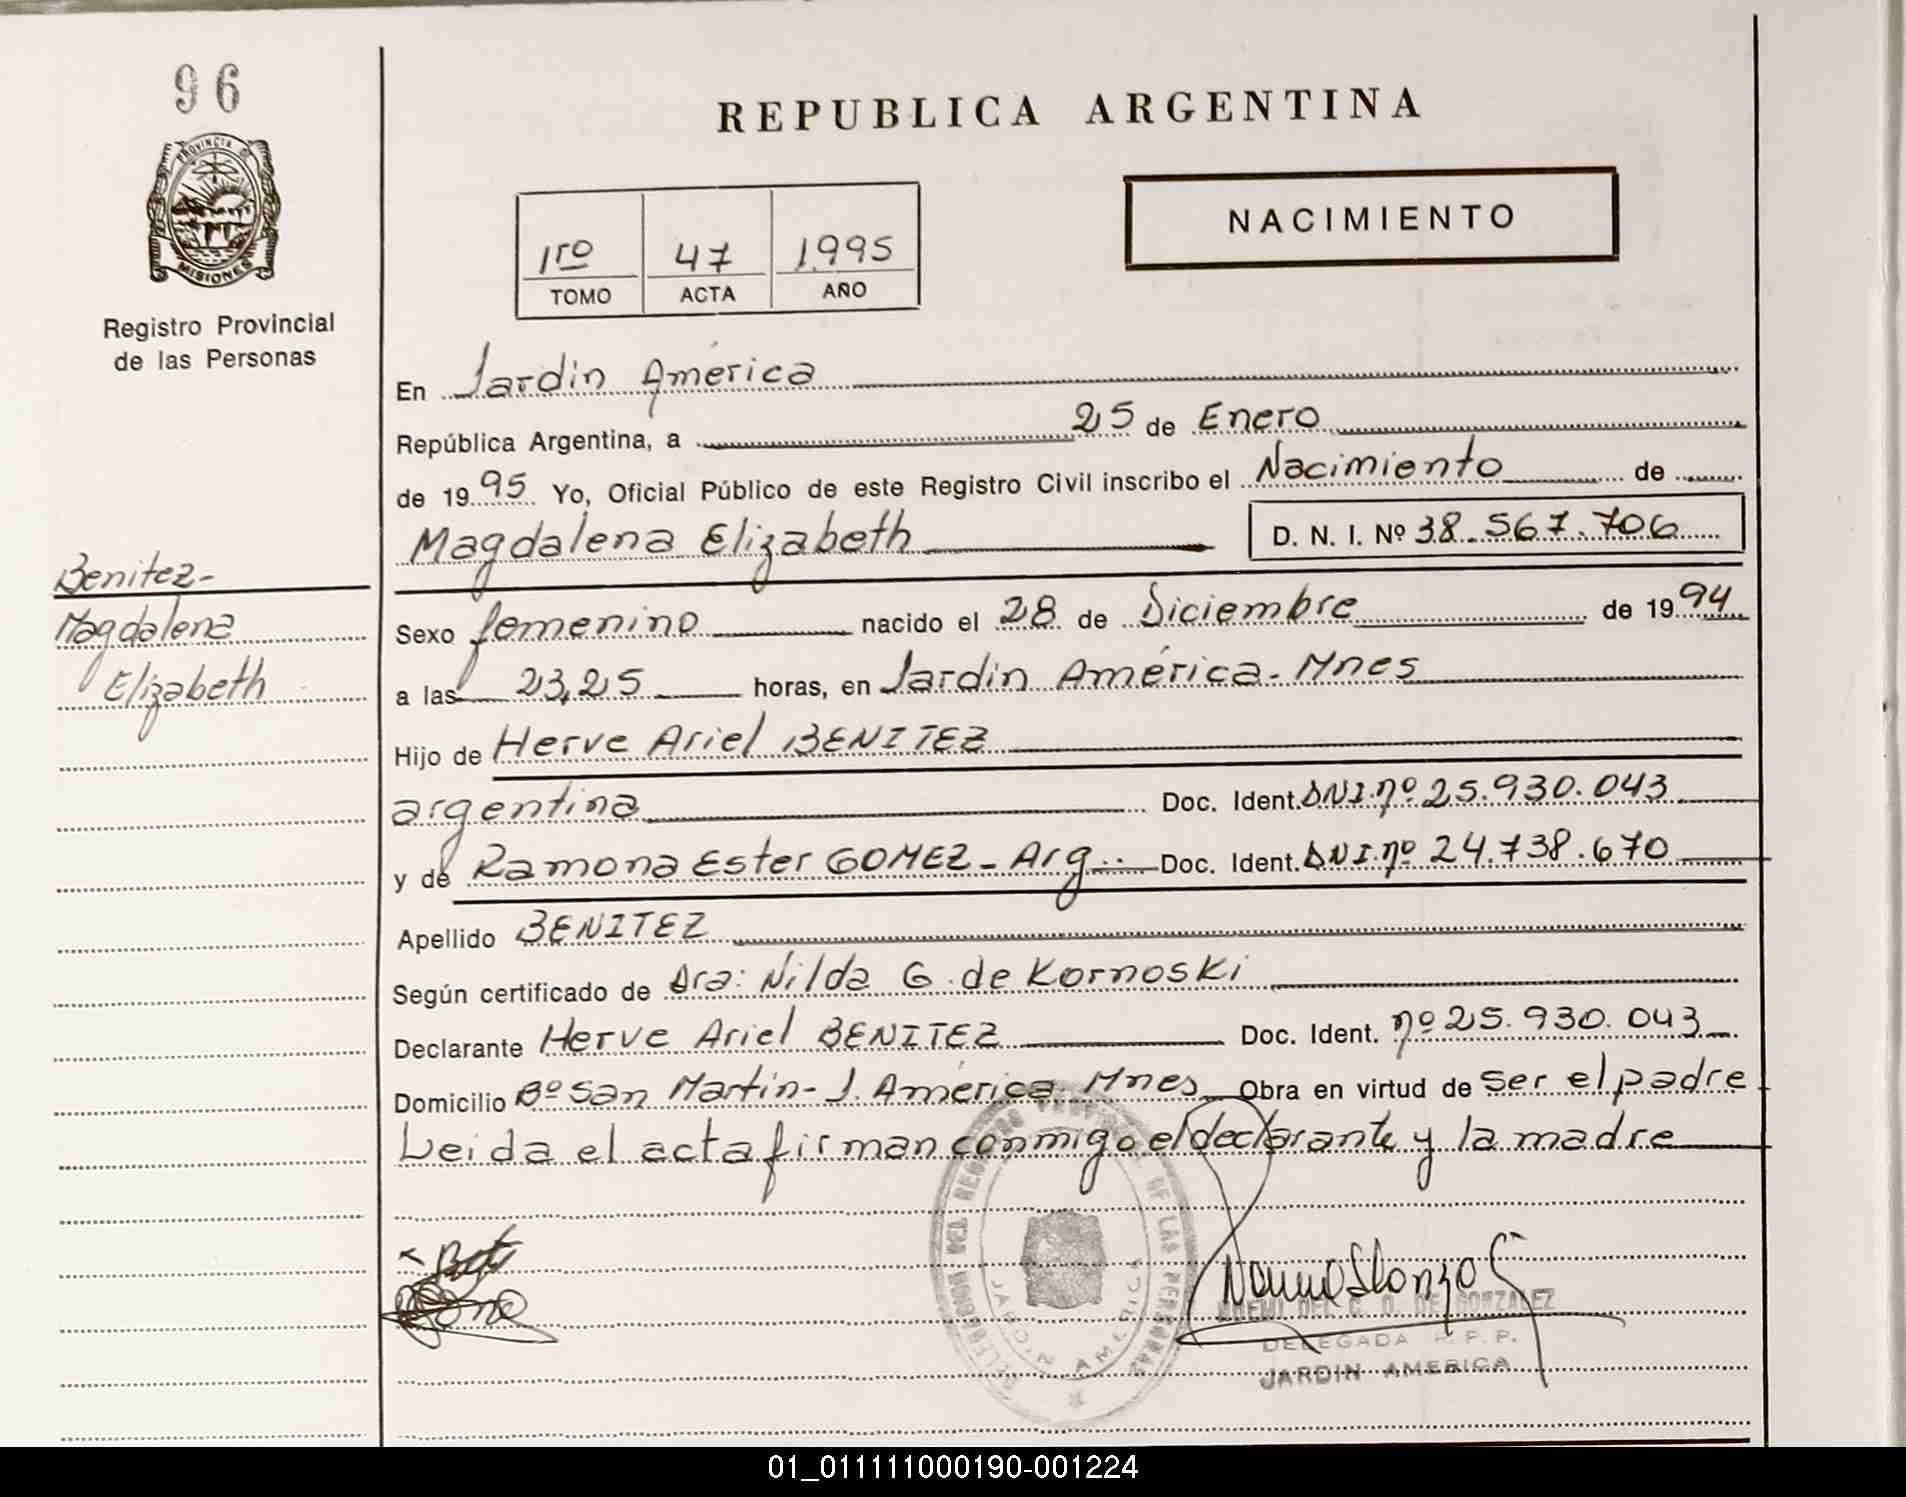 96
PROVINCIA DE
MISIONES
Registro Provincial
de las Personas
REPUBLICA ARGENTINA
NACIMIENTO
1ro 47 1.995
TOMO ACTA AÑO
En Jardin América
República Argentina, a 25 de Enero
de 1995 Yo, Oficial Público de este Registro Civil inscribo el Nacimiento de
Magdalena Elizabeth D. N. I. Nº 38.567.706
Benitez-
Magdalena
Elizabeth
Sexo femenino nacido el 28 de Diciembre de 1994
a las 23,25 horas, en Jardin América - Mnes
Hijo de Herve Ariel BENITEZ
argentina Doc. Ident. DNI.nº 25.930.043
y de Ramona Ester GOMEZ - Arg. Doc. Ident. DNI.nº 24.738.670
Apellido BENITEZ
Según certificado de Dra: Nilda G. de Kornoski
Declarante Herve Ariel BENITEZ Doc. Ident. nº 25.930.043
Domicilio Bº San Martin - J. América Mnes Obra en virtud de ser el padre
Leida el acta firman conmigo el declarante y la madre
DEL REGISTRO DE LAS PERSONAS
JARDIN AMERICA
NOEMI DEL C. O. DE GONZALEZ
DELEGADA R. P. P.
JARDIN AMERICA
01_011111000190-001224